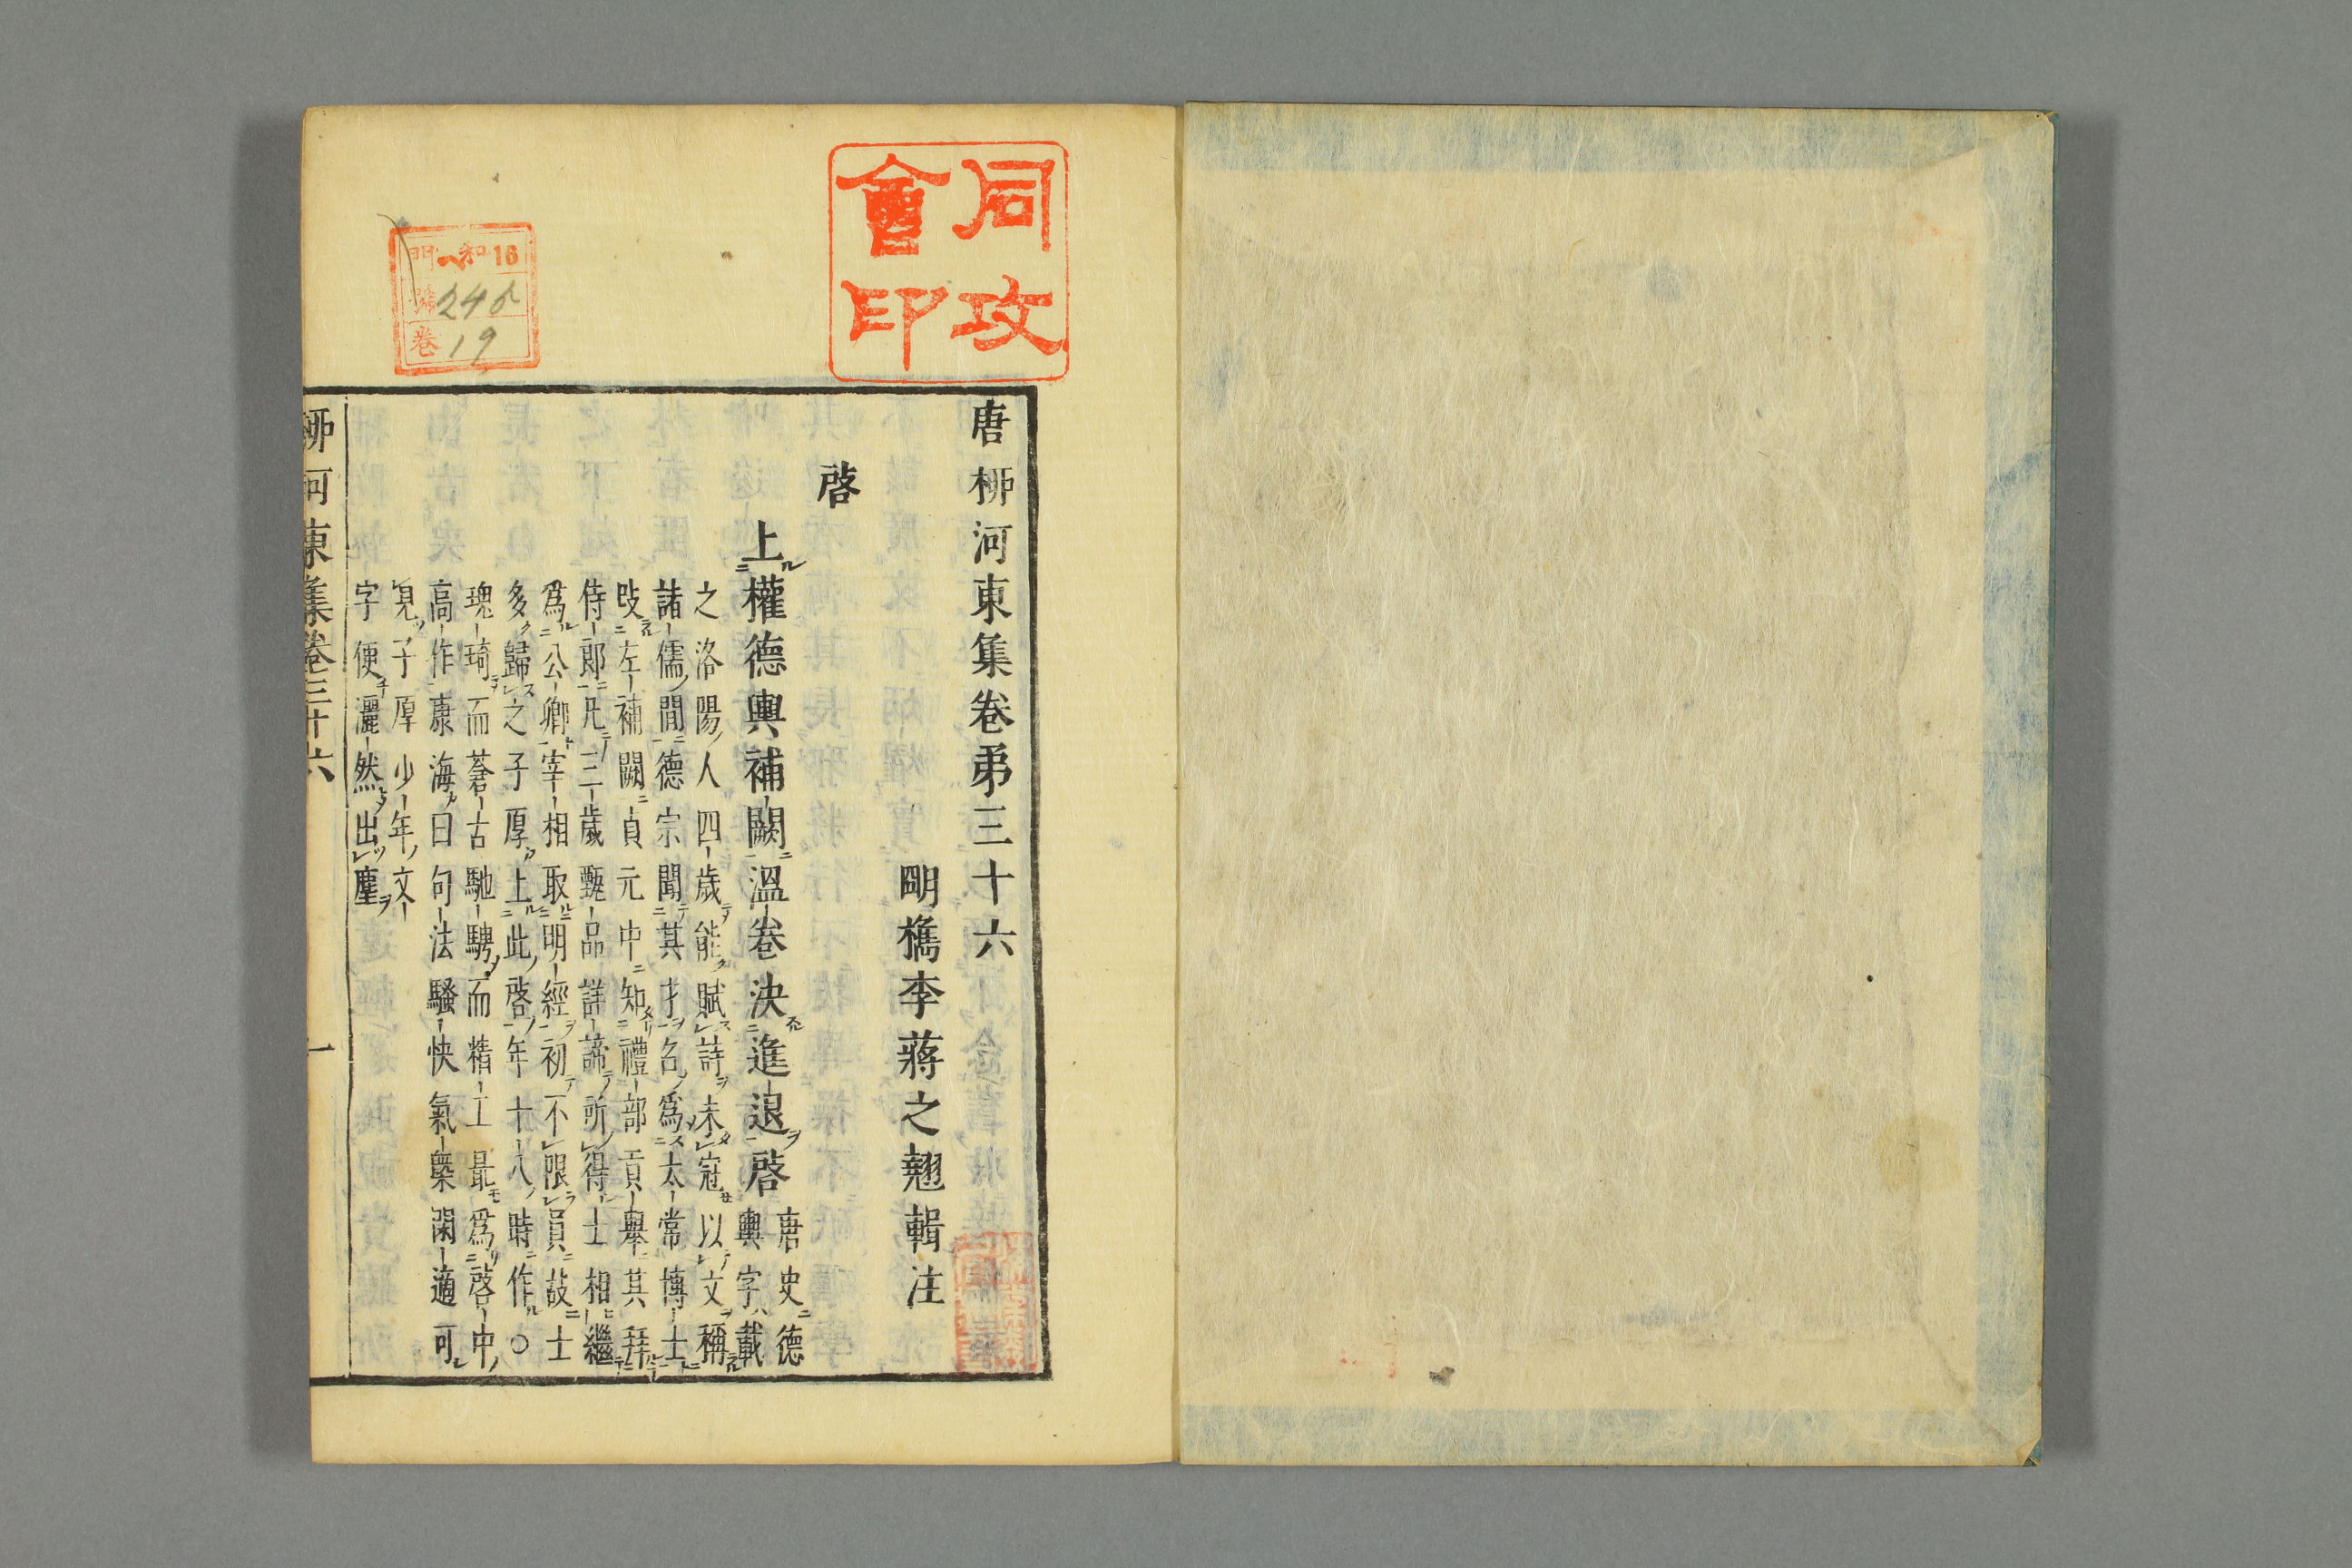 同攻會印
門 一 和 16
號 246
卷 19
唐栁河東集卷苐三十六
明檇李蔣之翹輯注
啓
上權德輿補闕溫卷決進退啓
唐史德
輿字載
之洛陽人四歲能賦詩未冠以文稱
諸儒閒德宗聞其才名爲太常博士
改左補闕貞元中知禮部貢舉其拜
侍郎凡三歲甄品詳諦所得士相繼
爲公卿宰相取明經初不限員故士
多歸之子厚上此啓年十八時作○
瑰琦而蒼古馳騁而精工最爲啓中
高作康海曰句法騷快氣槩閑適可
見子厚少年文
字便灑然出塵
栁河東集卷三十六
一